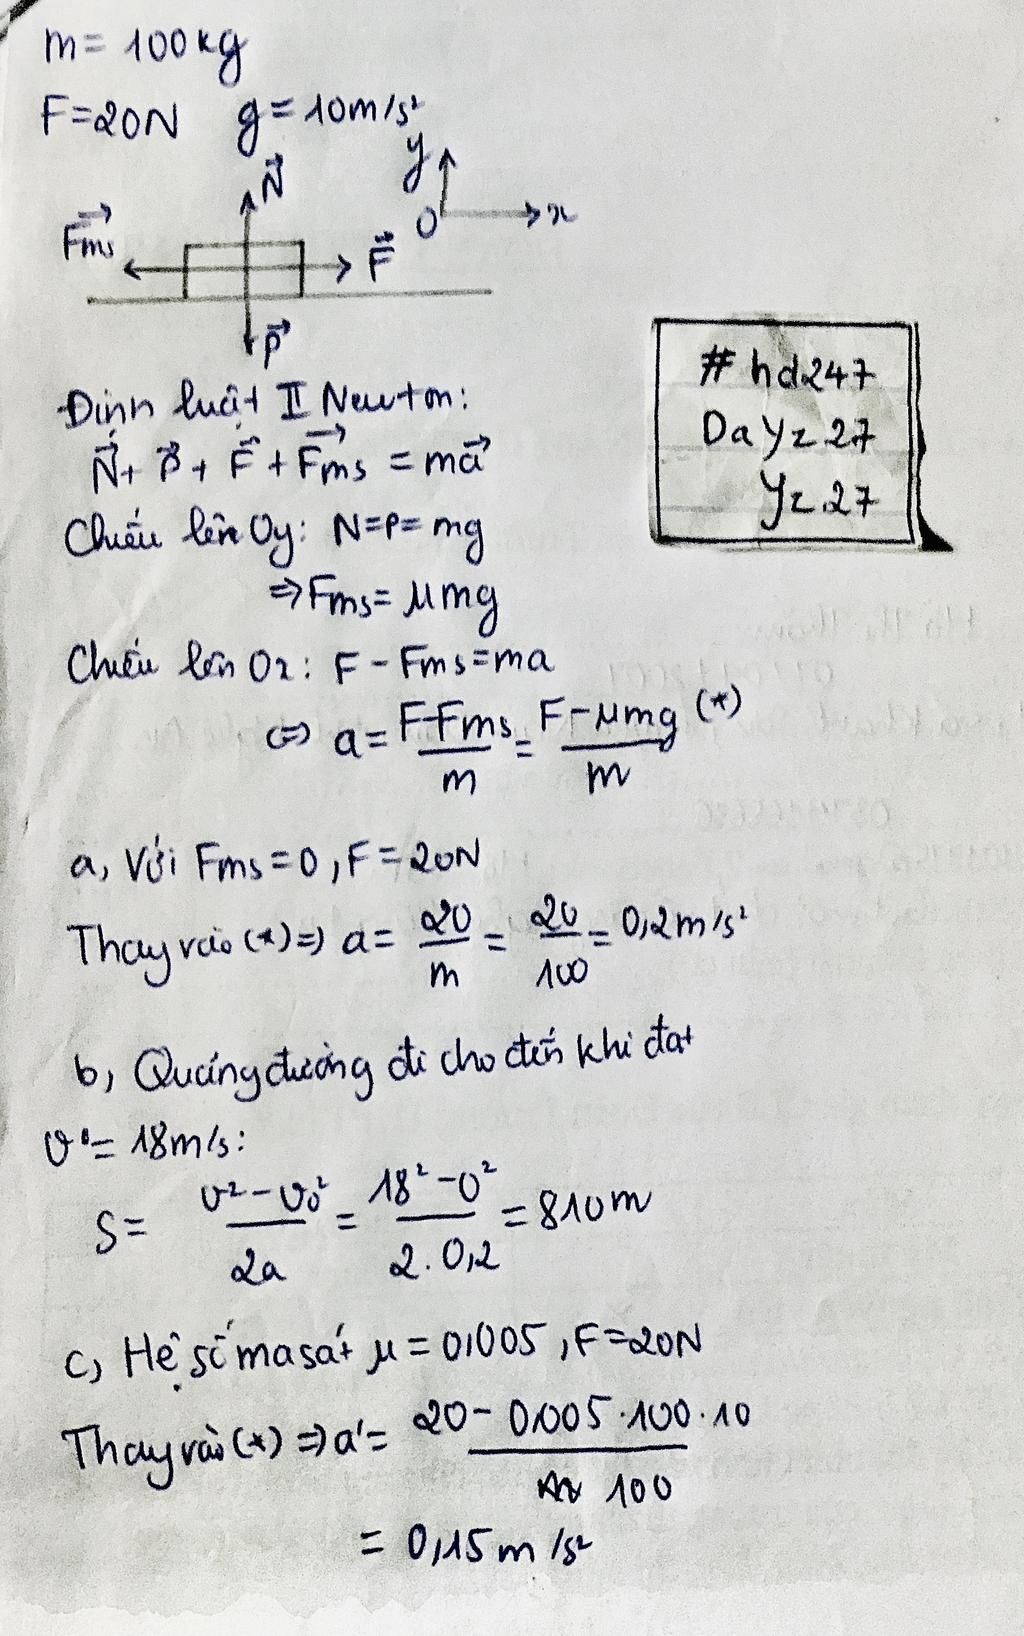 m = 100kg
F=20N g = 10m/s²
N⃗
y
Fms⃗
O
x
F⃗
P⃗
#hd247
Dayz27
yz27
Định luật II Newton:
N⃗ + P⃗ + F⃗ + Fms⃗ = ma⃗
Chiếu lên Oy: N=P= mg
⇒ Fms = μmg
Chiếu lên Ox: F - Fms = ma
⇔ a = F-Fms/m = F-μmg/m (*)
a, Với Fms = 0, F = 20N
Thay vào (*) ⇒ a = 20/m = 20/100 = 0,2m/s²
b, Quãng đường đi cho đến khi đạt
v = 18m/s:
S = v²-v₀²/2a = 18²-0²/2.0,2 = 810m
c, Hệ số ma sát μ = 0,005, F = 20N
Thay vào (*) ⇒ a' = 20-0,005.100.10/100
= 0,15m/s²